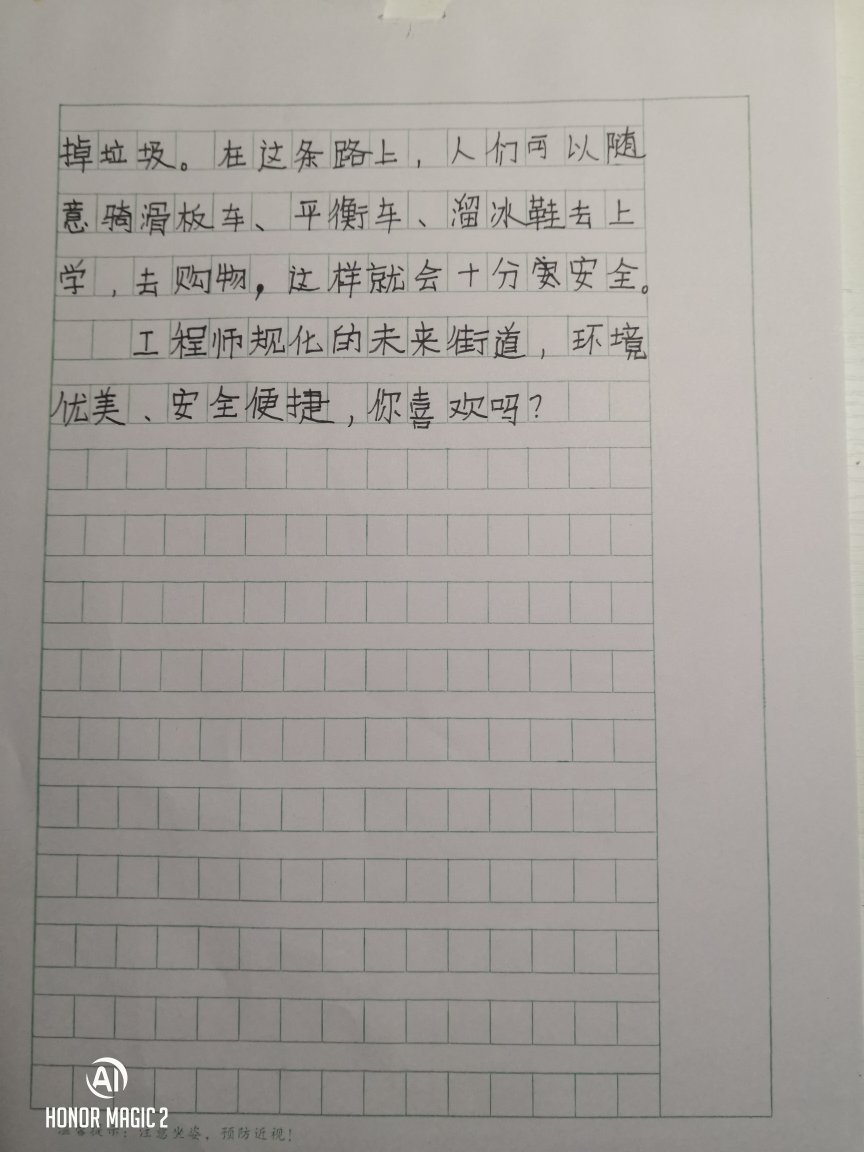 掉垃圾。在这条路上，人们可以随
意骑滑板车、平衡车、溜冰鞋去上
学，去购物，这样就会十分安全。
工程师规化的未来街道，环境
优美、安全便捷，你喜欢吗？
AI
HONOR MAGIC 2
温馨提示：注意坐姿，预防近视！